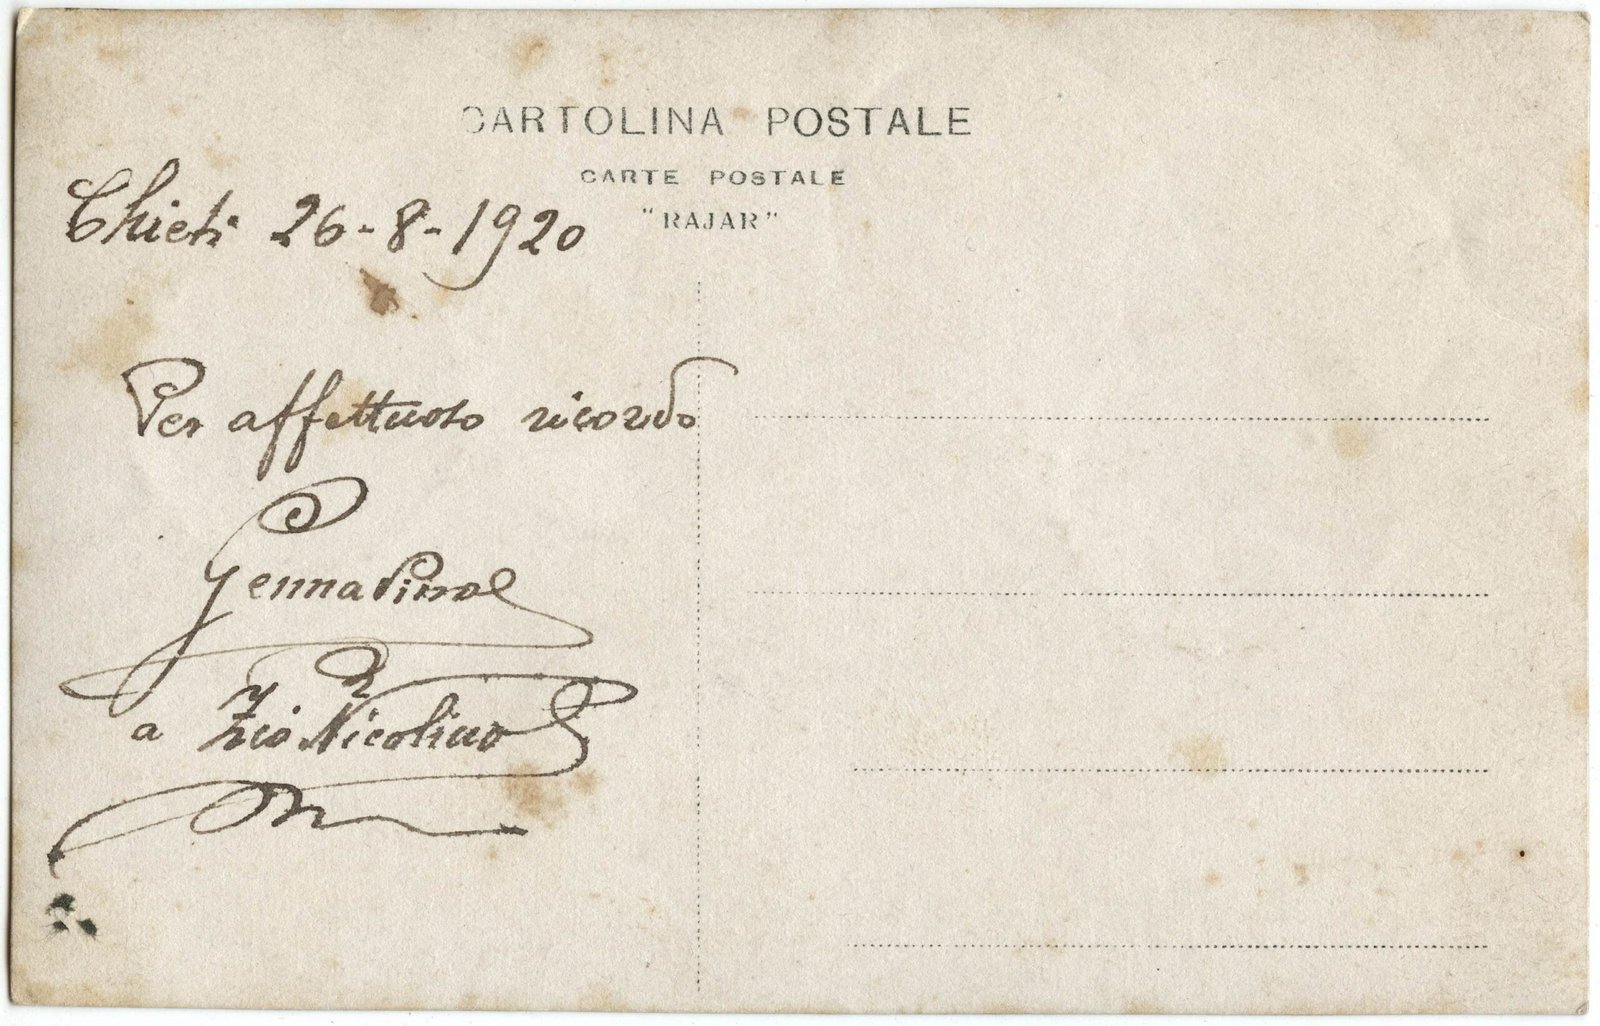 CARTOLINA POSTALE
CARTE POSTALE
"RAJAR"
Chieti 26-8-1920
Per affettuoso ricordo
a Zio Nicolino